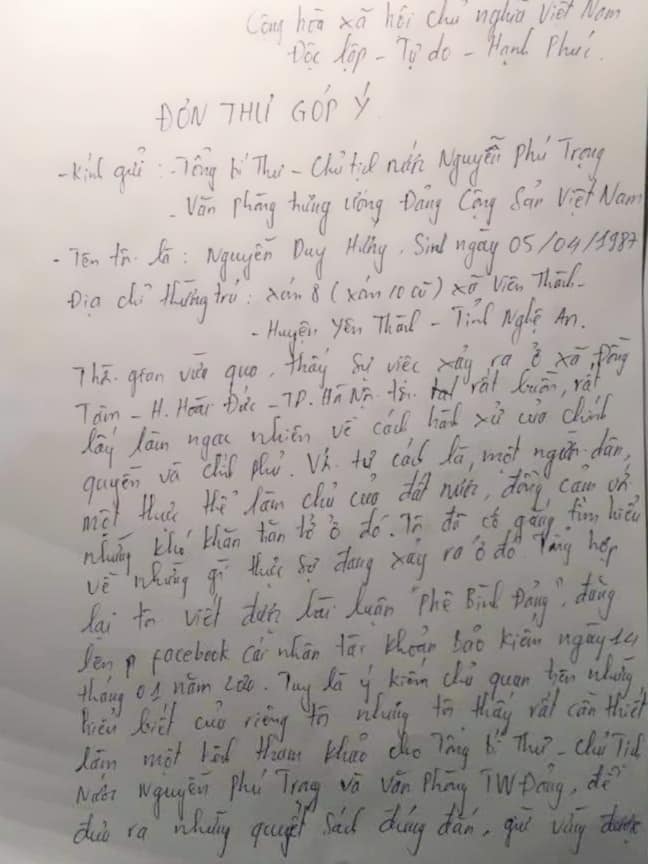 Cộng hoà xã hội chủ nghĩa Việt Nam
Độc lập - Tự do - Hạnh Phúc.
ĐƠN THƯ GÓP Ý
- Kính gửi : - Tổng bí Thư - Chủ tịch nước Nguyễn Phú Trọng
- Văn phòng trung ương Đảng Cộng Sản Việt Nam
- Tên tôi là : Nguyễn Duy Hướng. Sinh ngày 05/04/1987
Địa chỉ thường trú : xóm 8 ( xóm 10 cũ ) xã Viên Thành -
- Huyện Yên Thành - Tỉnh Nghệ An.
Thời gian vừa qua, thấy sự việc xảy ra ở xã Đồng
Tâm - H. Hoài Đức - TP. Hà Nội tôi rất buồn, rất
lấy làm ngạc nhiên về cách hành xử của chính
quyền và chính phủ. Với tư cách là, một người dân,
một thực thể làm chủ của đất nước, đồng cảm với
những khó khăn ở đó. Tôi đã cố gắng tìm hiểu
về những gì thực sự đang xảy ra ở đó Tổng hợp
lại tôi viết được bài luận "Phê Bình Đảng", đăng
lên facebook cá nhân tài khoản Bảo Kiếm ngày 14
tháng 01 năm 2020. Tuy là ý kiến chủ quan trên những
hiểu biết của riêng tôi nhưng tôi thấy rất cần thiết
làm một kênh tham khảo cho Tổng bí Thư - Chủ Tịch
Nước Nguyễn Phú Trọng và Văn Phòng TW Đảng, để
đưa ra những quyết sách đúng đắn, giữ vững được